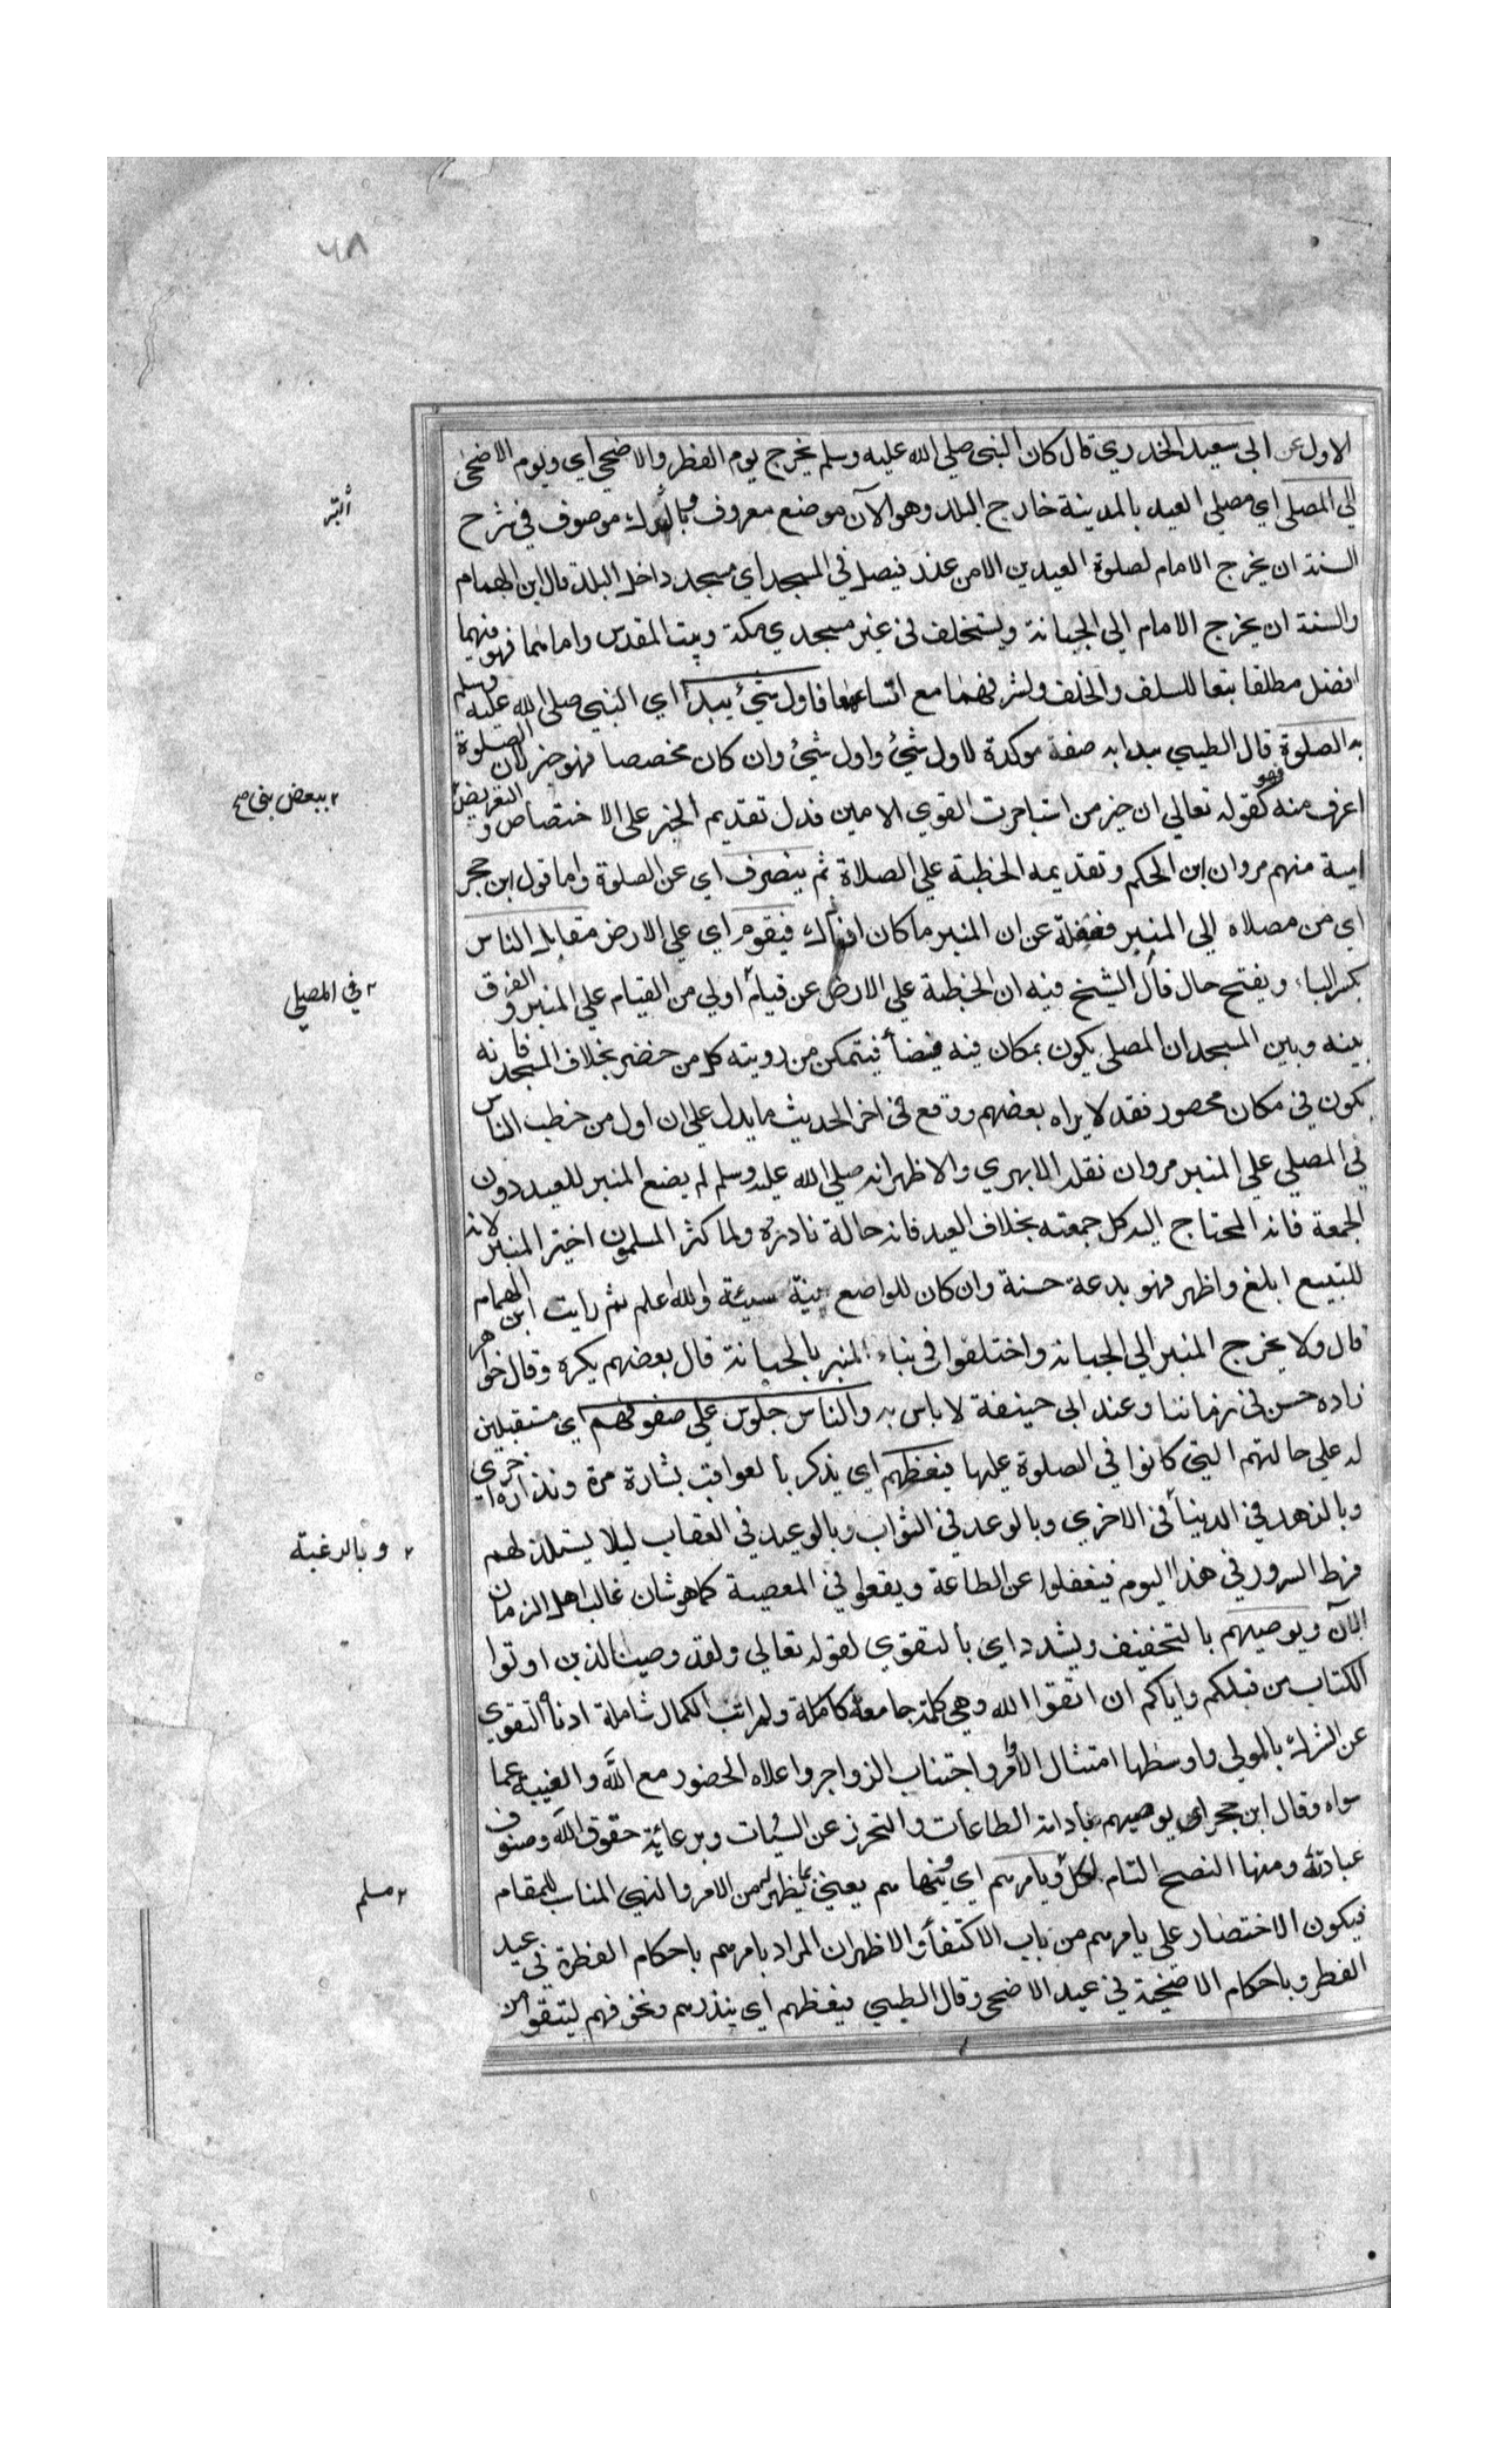 ٦٨
الاول عن ابى سعيد الخدري قال كان النبى صلي الله عليه وسلم يخرج يوم الفطر والاضحي اي ويوم الاضحى
الي المصلى اي مصلي العيد بالمدينة خارج البلد وهو الآن موضع معروف موصوف في شرح
السنة ان يخرج الامام لصلوة العيدين الا من عذر فيصل في المسجد اي مسجد داخل البلد قال ابن الهمام
والسنة ان يخرج الامام الي الجبانة ويستخلف في غير مسجدي مكة وبيت المقدس واما هما فهو فيهما
افضل مطلقا تبعا للسلف والخلف ولشرفهما مع اتساعهما فاول شئ يبدأ اي النبي صلى الله عليه وسلم
به الصلوة قال الطيبي يبدا به صفة موكدة لاول شئ واول شئ وان كان مخصصا فهو خبر لان الصلوة
اعرف منه فهو كقوله تعالي ان خير من استاجرت القوي الامين فدل تقديم الخبر على الاختصاص و التعريض
امية منهم مروان ابن الحكم وتقديمه الخطبة علي الصلاة ثم ينصرف اي عن الصلوة واما قول ابن حجر
اي من مصلاه الي المنبر فغفلة عن ان المنبر ما كان اذ ذاك فيقوم اي علي الارض مقابل الناس
بكسر الباء ويفتح حال قال الشيخ فيه ان الخطبة علي الارض عن قيام اولي من القيام علي المنبر و الفرق
بينه وبين المسجد ان المصلي يكون بمكان فيه فيضأ فيتمكن من رويته كل من حضر بخلاف المسجد فانه
يكون في مكان محصور فقد لا يراه بعضهم ووقع في اخر الحديث ما يدل علي ان اول من خطب الناس
في المصلي علي المنبر مروان نقله الابهري والاظهر انه صلي الله عليه وسلم لم يضع المنبر للعيد دون
الجمعة فانه المحتاج اليه كل جمعته بخلاف العيد فانه حالة نادرة ولما كثر المسلمون اختير المنبر لانه
للتبيع ابلغ واظهر فهو بدعة حسنة وان كان للواضع نية سيئة والله اعلم ثم رايت ابن الهمام
قال ولا يخرج المنبر الي الجبانة واختلفوا في بناء المنبر بالجبانة قال بعضهم يكره وقال خواهر
زاده حسن في زماننا وعند ابى حنيفة لا باس به والناس جلوس علي صفوفهم اي مستقبلين
له علي حالتهم التي كانوا في الصلوة عليها فيعظهم اي يذكر بالعواقب بشارة مرة ونذارة اخري
وبالزهد في الدنيا في الاخري وبالوعد في الثواب وبالوعيد في العقاب ليلا يستلذ لهم
فرط السرور في هذا اليوم فيغفلوا عن الطاعة ويقعوا في المعصية كما هو شان غالب اهل الزمان
الآن ويوصيهم بالتخفيف ويشدد اي بالتقوي لقوله تعالي ولقد وصينا الذين اوتوا
الكتاب من قبلكم واياكم ان اتقوا الله وهي كلمة جامعة كاملة ولمراتب الكمال شاملة ادنأ التقوي
عن الشرك بالمولي واوسطها امتثال الاوامر واجتناب الزواجر واعلاه الحضور مع الله والغيبة عما
سواه وقال ابن حجر اي يوصيهم بادامة الطاعات والتحرز عن السيئات وبرعاية حقوق الله وصنوف
عباداته ومنها النصح التام لكل ويامرهم اي وينهاهم يعني بما يظهر له من الامر والنهي المناسب للمقام
فيكون الاختصار علي يامرهم من باب الاكتفأ والاظهر ان المراد يامرهم باحكام الفطرة في عيد
الفطر وباحكام الاضحية في عيد الاضحى وقال الطيبي فيعظهم اي ينذرهم ونخوفهم ليتقوا من
ببعض بنى صح
في المصلي
وبالرغبة
مسلم